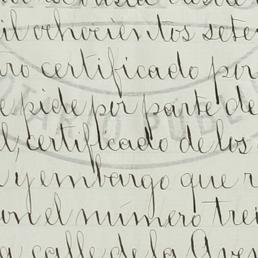 il ochocientos sete
ro certificado por
e pide por parte de
l, certificado de los
y embargo que r
on el número trei
a calle de la Ave